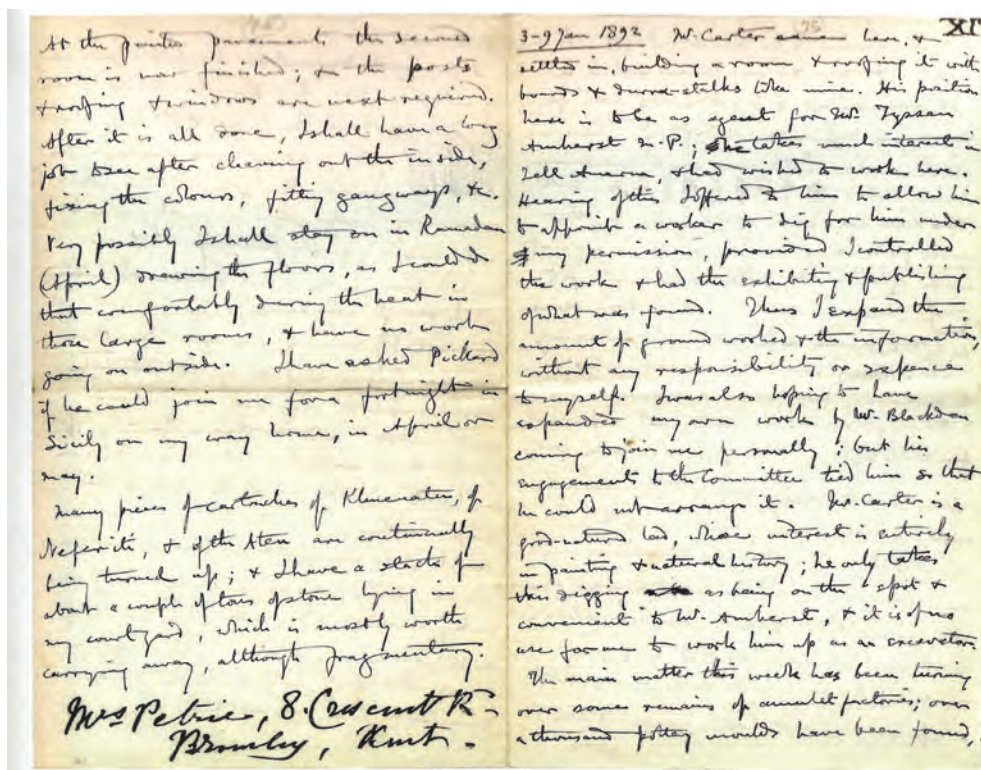 At the painted pavements the second
room is now finished; & the posts
& roofing & windows are next required.
After it is all done, I shall have a long
job to see after cleaning out the inside,
fixing the colours, fitting gangways, &c.
Very possibly I shall stay on in Ramadan
(April) drawing the floors, as I could do
that comfortably during the heat in
those large rooms, & have no work
going on outside. I have asked Pickard
if he could join me for a fortnight in
Sicily on my way home, in April or
May.
Many pieces of cartouches of Khuenaten, of
Nefertiti, & of the Aten are continually
being turned up; & I have a stack of
about a couple of tons of stone lying in
my courtyard, which is mostly worth
carrying away, although fragmentary.
Mrs Petrie, 8. Crescent R.
Bromley, Kent.
75 XI
3-9 Jan 1892 Mr. Carter came here, &
settled in, building a room & roofing it with
boards & durra-stalks like mine. His position
here is to be as agent for Mr. Tyssen
Amherst M.P.; he takes much interest in
Tell Amarna, & had wished to work here.
Hearing of this I offered to him to allow him
to appoint a worker to dig for him under
my permission, provided I controlled
the work & had the exhibiting & publishing
of what was found. Thus I expand the
amount of ground worked & the information,
without any responsibility or expence
to myself. I was also hoping to have
expanded my own work by Mr. Blackden
coming to join me personally; but his
engagements to the Committee tied him so that
he could not arrange it. Mr. Carter is a
good-natured lad, whose interest is entirely
in painting & natural history; he only takes
this digging as being on the spot &
convenient to Mr. Amherst, & it is of no
use for me to work him up as an excavator.
The main matter this week has been turning
over some remains of amulet factories; over
a thousand pottery moulds have been found,